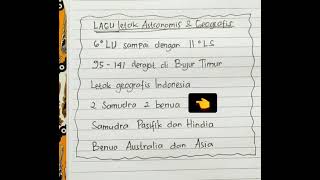 LAGU letak Astronomis & Geografis
6° LU sampai dengan 11° LS
95 - 141 derajat di Bujur Timur
Letak geografis Indonesia
2 Samudra 2 benua
Samudra Pasifik dan Hindia
Benua Australia dan Asia